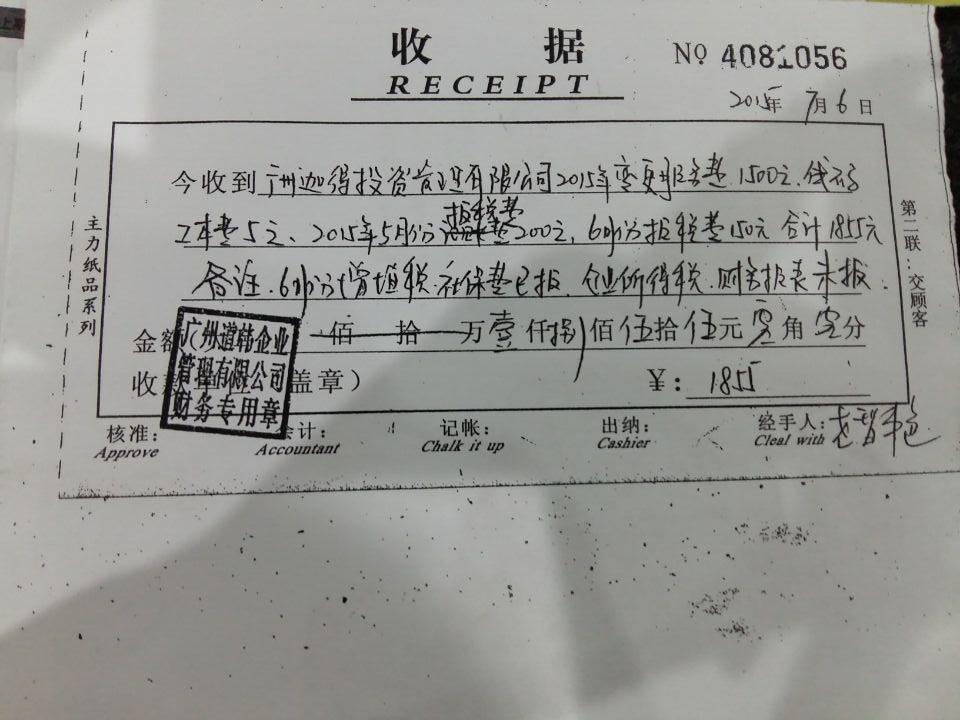 收 据
RECEIPT
Nº 4081056
2015年 7月 6日
今收到 广州迦得投资管理有限公司2015年变更服务费1500元、代码
工本费5元、2015年5月份报税费200元、6月份报税费150元 合计1855元
备注:6月份增值税、社保费已报、企业所得税、财务报表未报.
金额 佰 拾 万壹仟捌佰伍拾伍元零角零分
收款 盖章)
¥: 1855
广州道韩企业
管理有限公司
财务专用章
核准: 会计: 记帐: 出纳: 经手人:
Approve Accountant Chalk it up Cashier Cleal with
主力纸品系列
第二联:交顾客